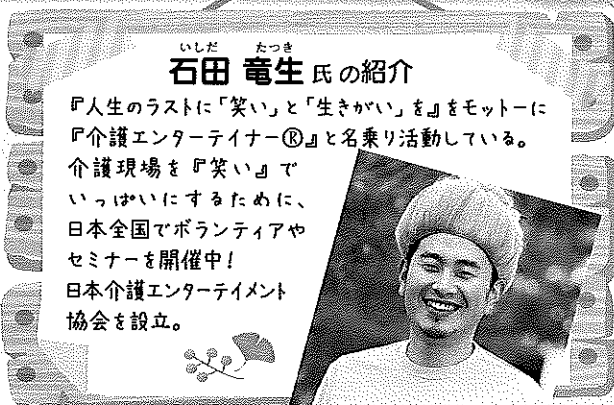 いしだ たつき
石田 竜生 氏の紹介
『人生のラストに「笑い」と「生きがい」を』をモットーに
『介護エンターテイナー®』と名乗り活動している。
介護現場を『笑い』で
いっぱいにするために、
日本全国でボランティアや
セミナーを開催中！
日本介護エンターテイメント
協会を設立。